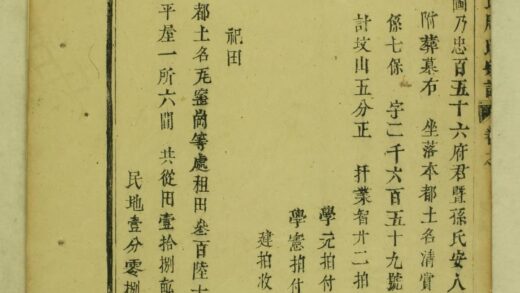 圖乃忠百五十六府君暨孫氏安人
附葬墓布 坐落本都土名清賞
係七保 字二千六百五十九號
計墳山五分正 扞業智廾二拍
學元拍付
學憲拍付
建拍收
祀田
都土名旡蜜崗等處租田叁百陸
平屋一所六間 共從田壹拾捌
民地壹分零捌